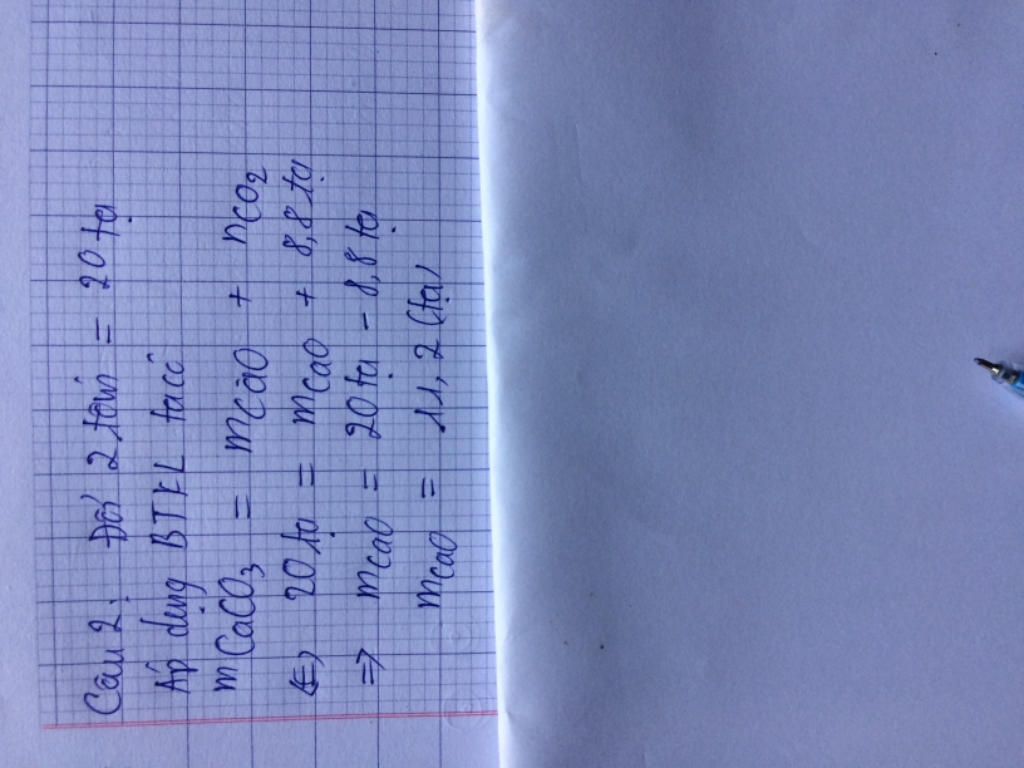 Câu 2: Đổi 2 tấn = 20 tạ
Áp dụng BTKL ta có
mCaCO3 = mCaO + nCO2
⇔ 20 tạ = mCaO + 8,8 tạ
⇒ mCaO = 20 tạ - 8,8 tạ
mCaO = 11,2 (tạ)